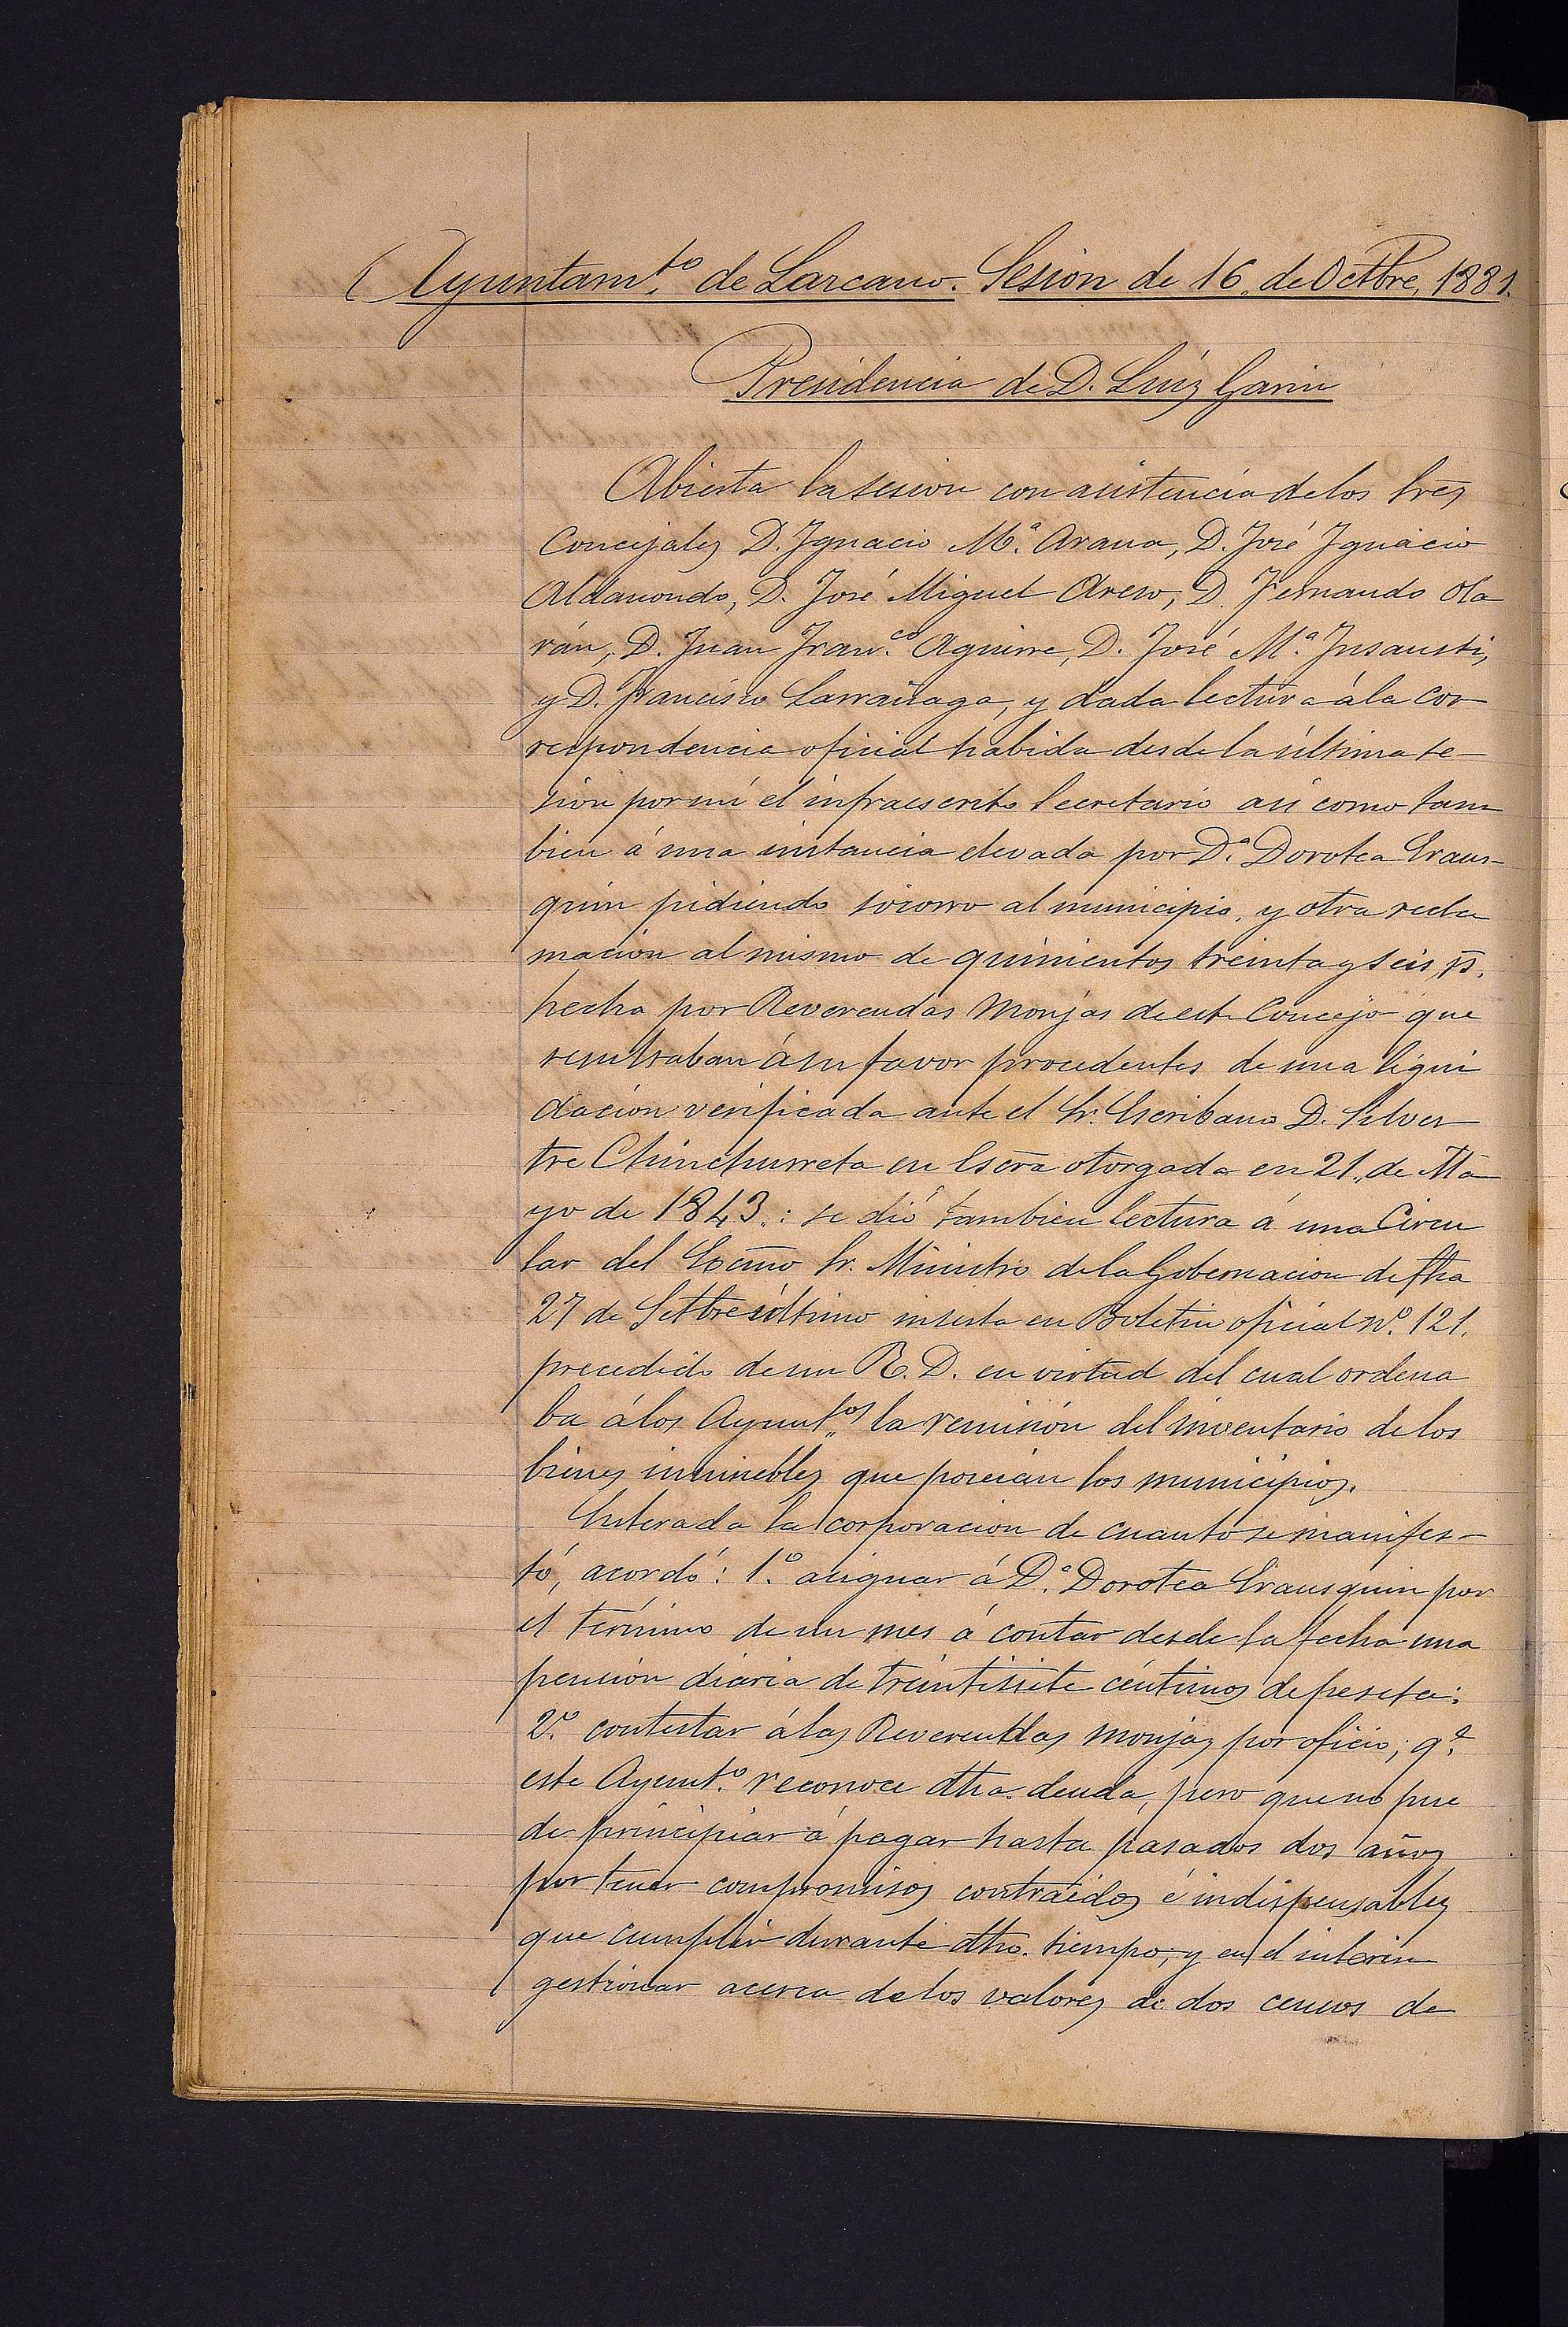 Ayuntam.to de Lazcano. Sesión de 16, de Octbre, 1881.
Presidencia de D. Luíz Garin
Abierta la sesion con asistencia de los Sres
Concejales D. Ignacio Mª. Arana, D. José Ignacio
Aldanondo, D. José Miguel Areso, D. Fernando Ola
rán, D. Juan Fran.co Aguirre, D. José Mª. Insausti,
y D. Francisco Larrañaga, y dada lectura á la cor
respondencia oficial habida desde la última se-
sion por mí el infraescrito Secretario asi como tam
bien á una instancia elevada por D.ª Dorotea Eraus-
quin pidiendo socorro al municipio, y otra recla
macion al mismo de quinientos treinta y seis, rs.
hecha por Reverendas Monjas de este Concejo que
resultaban á su favor procedentes de una liqui
dacion verificada ante el Sr. Escribano D. Silves
tre Chinchurreta en Escra otorgada en 21., de Ma
yo de 1843.: se dió tambien lectura á una Circu
lar del Excmo Sr. Ministro de la Gobernacion de fha
27 de Settbre último inserta en Boletin oficial Nº. 121.
precedido de un R. D. en virtud del cual ordena
ba á los Ayunt.os la remisión del inventario de los
bienes inmuebles que poseian los municipios.
Enterada la corporacion de cuanto se manifes-
tó, acordó: 1.º asignar á D.ª Dorotea Erausquin por
el término de un mes á contar desde la fecha una
pensión diaria de treintisiete céntimos de peseta:
2.º contestar á las Reverendas Monjas por oficio; q.e
este Ayunt.º reconoce dha. deuda, pero que no pue
de principiar á pagar hasta pasados dos años
por tener compromisos contraidos é indispensables
que cumplir durante dho. tiempo, y en el interin
gestionar acerca de los valores de dos censos de